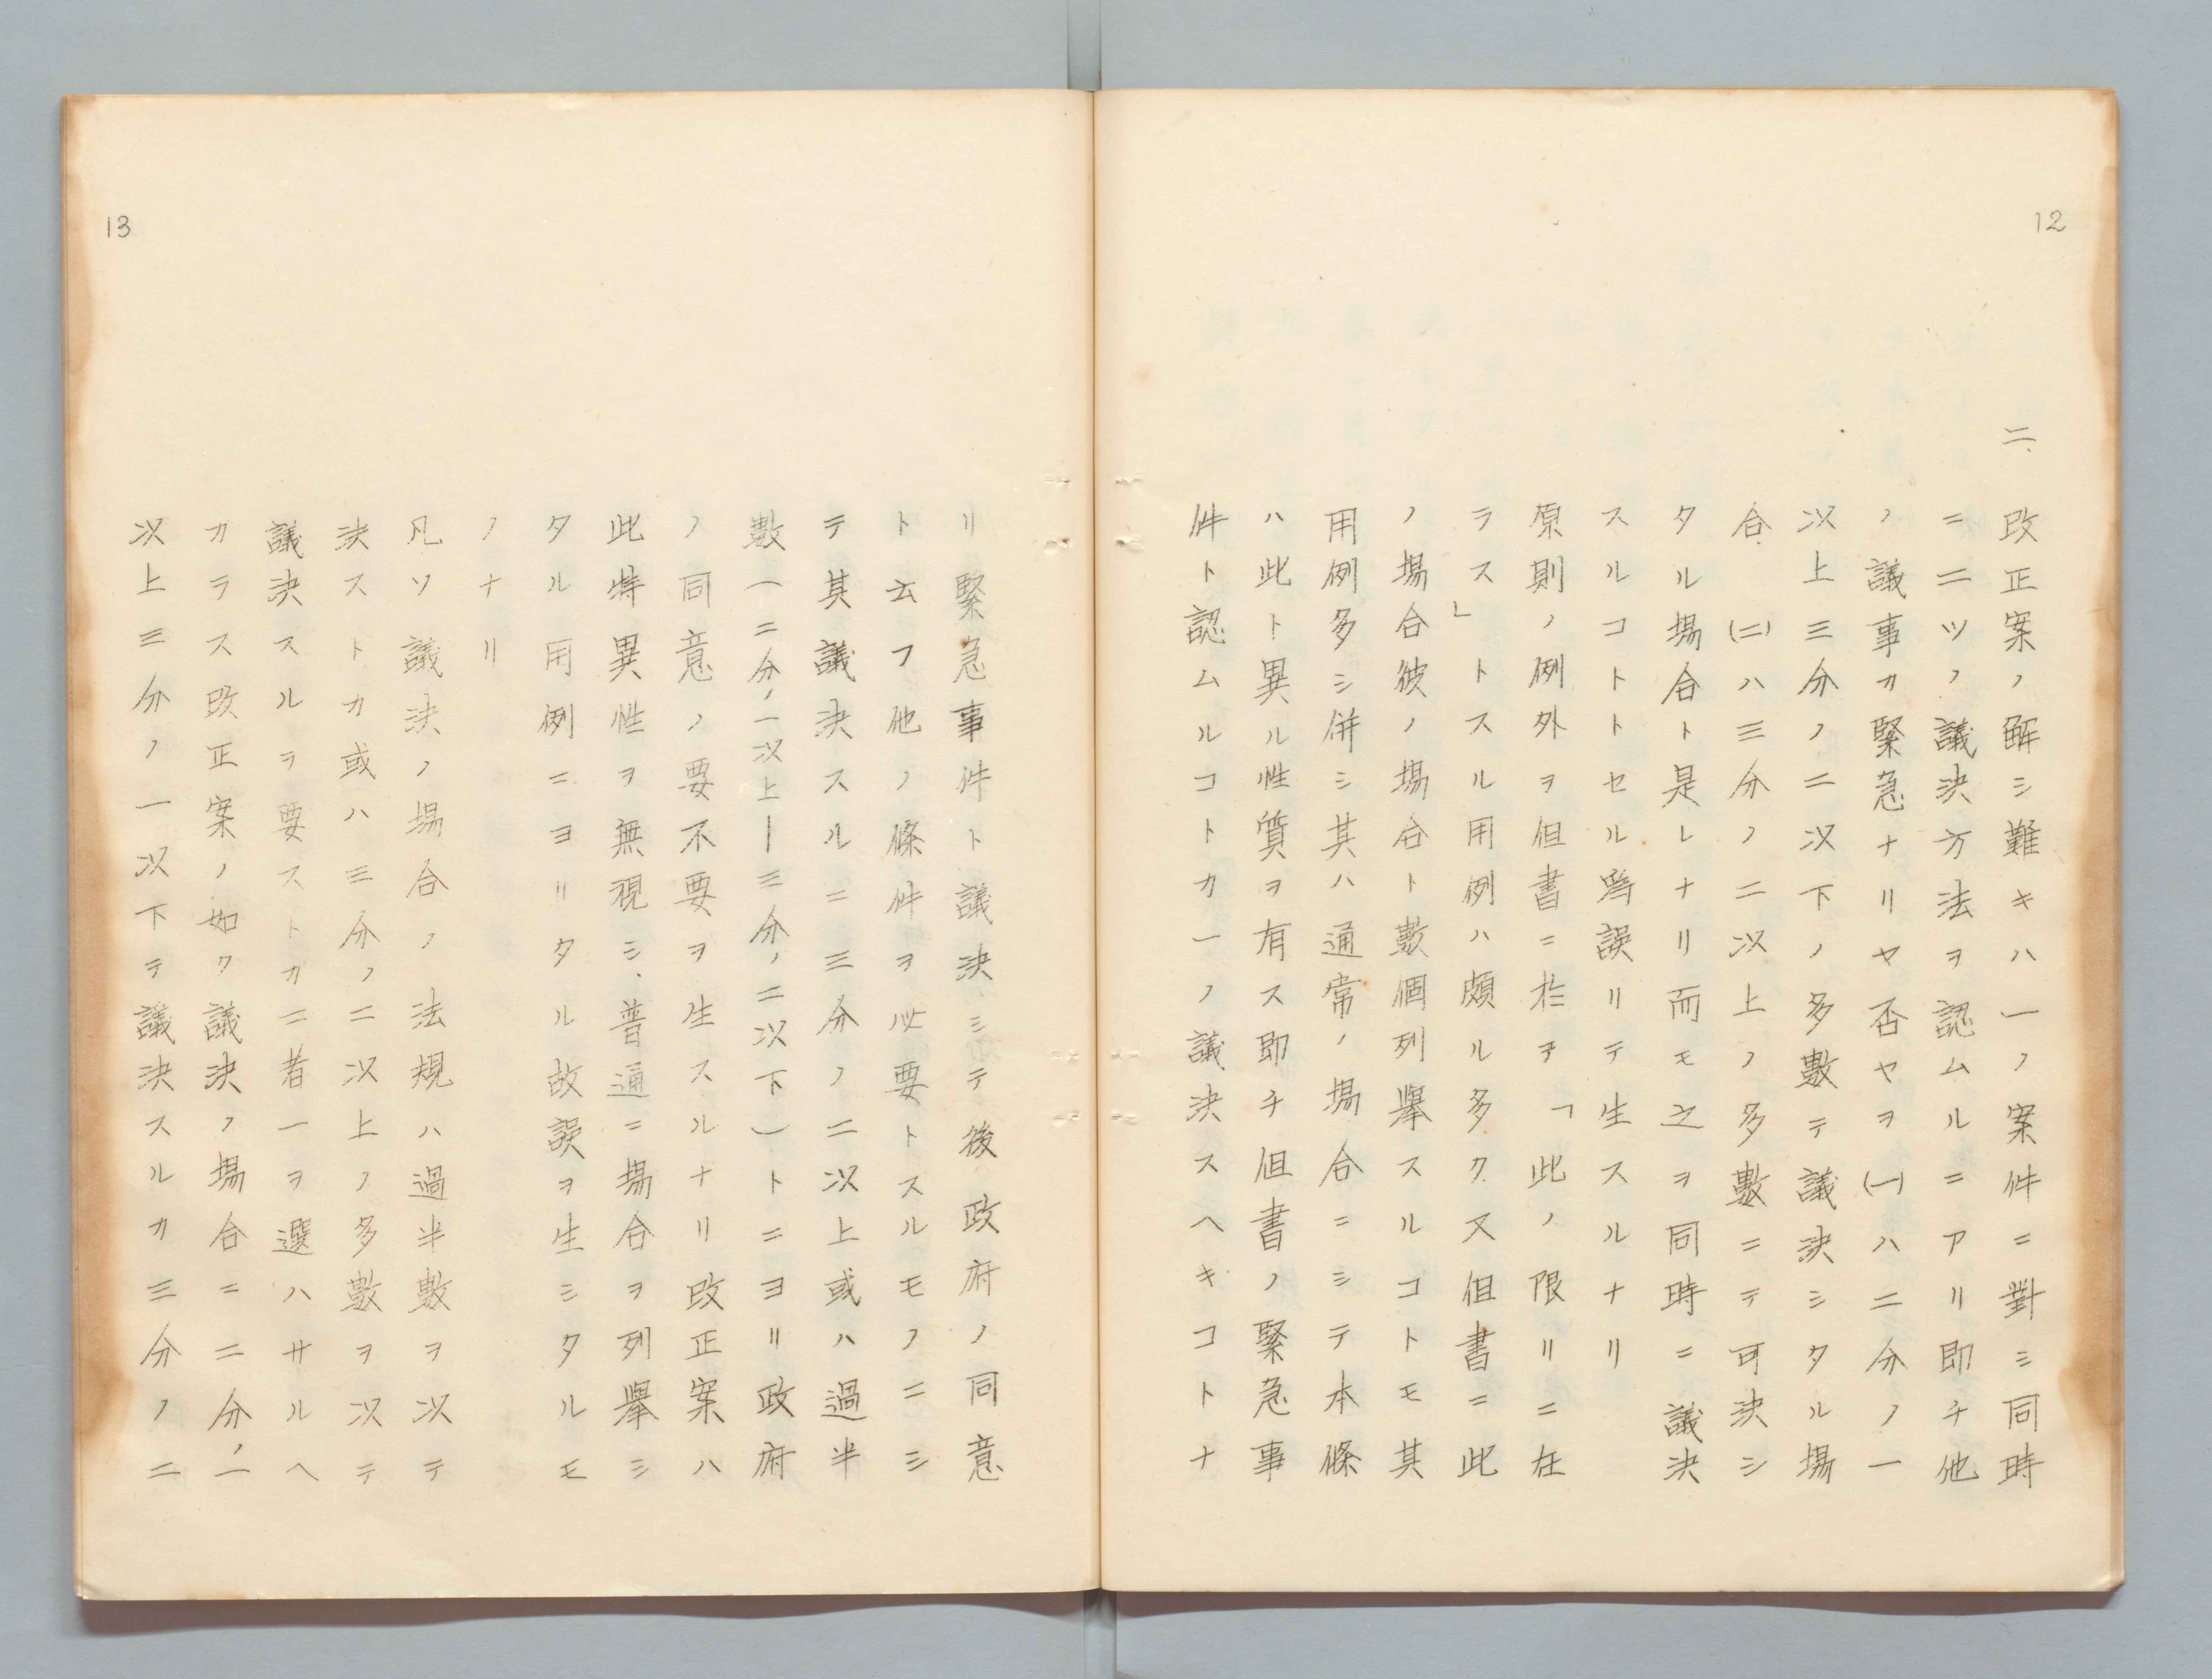 12
二、改正案ノ解シ難キハ一ノ案件ニ對シ同時
ニ二ツノ議決方法ヲ認ムルニアリ即チ他
ノ議事カ緊急ナリヤ否ヤヲ(一)ハ二分ノ一
以上三分ノ二以下ノ多數テ議決シタル場
合(二)ハ三分ノ二以上ノ多數ニテ可決シ
タル場合ト是レナリ而モ之ヲ同時ニ議決
スルコトトセル為誤リテ生スルナリ
原則ノ例外ヲ但書ニ於テ「此ノ限リニ在
ラス」トスル用例ハ頗ル多ク又但書ニ此
ノ場合彼ノ場合ト數個列擧スルコトモ其
用例多シ併シ其ハ通常ノ場合ニシテ本條
ハ此ト異ル性質ヲ有ス即チ但書ノ緊急事
件ト認ムルコトカ一ノ議決スヘキコトナ
13
リ緊急事件ト議決シテ後政府ノ同意
ト云フ他ノ條件ヲ必要トスルモノニシ
テ其議決スルニ三分ノ二以上或ハ過半
數(二分ノ一以上―三分ノ二以下)トニヨリ政府
ノ同意ノ要不要ヲ生スルナリ改正案ハ
此特異性ヲ無視シ、普通ニ場合ヲ列擧シ
タル用例ニヨリタル故誤ヲ生シタルモ
ノナリ
凡ソ議決ノ場合ノ法規ハ過半數ヲ以テ
決ストカ或ハ三分ノ二以上ノ多數ヲ以テ
議決スルヲ要ストカ二者一ヲ選ハサルヘ
カラス改正案ノ如ク議決ノ場合ニ二分ノ一
以上三分ノ一以下テ議決スルカ三分ノ二